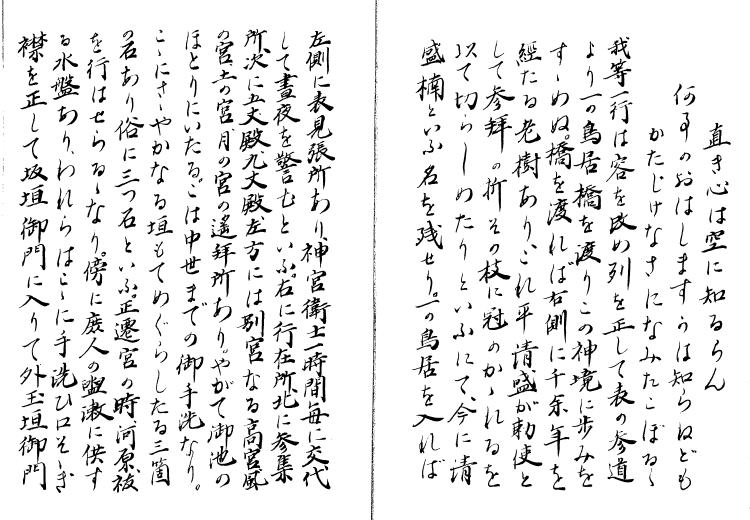 直き心は空に知るらん
何事のおはしますかは知らねども
かたじけなさになみだこぼるゝ
我等一行は容を改め列を正して表の参道
より一の鳥居橋を渡りこの神境に歩みを
すゝめぬ。橋を渡れば右側に千余年を
經たる老樹あり、これ平清盛が勅使と
して参拜の折その枝に冠のかゝれるを
以て切らしめたりといふにて、今に清
盛楠といふ名を残せり。一の鳥居を入れば
左側に表見張所あり、神宮衛士一時間毎に交代
して晝夜を警むといふ。右に行在所、北に参集
所、次に五丈殿、九丈殿左方には別宮なる高宮風
の宮土の宮、月の宮の遙拜所あり。やがて御池の
ほとりにいたる。こは中世までの御手洗なり。
こゝにさゝやかなる垣もてめぐらしたる三箇
の石あり俗に三つ石といふ。正遷宮の時、河原祓
を行はせらるゝなり。傍に庶人の盥漱に供す
る水盤あり、われらはこゝに手洗ひ口そゝぎ
襟を正して坂垣御門に入りて外玉垣御門